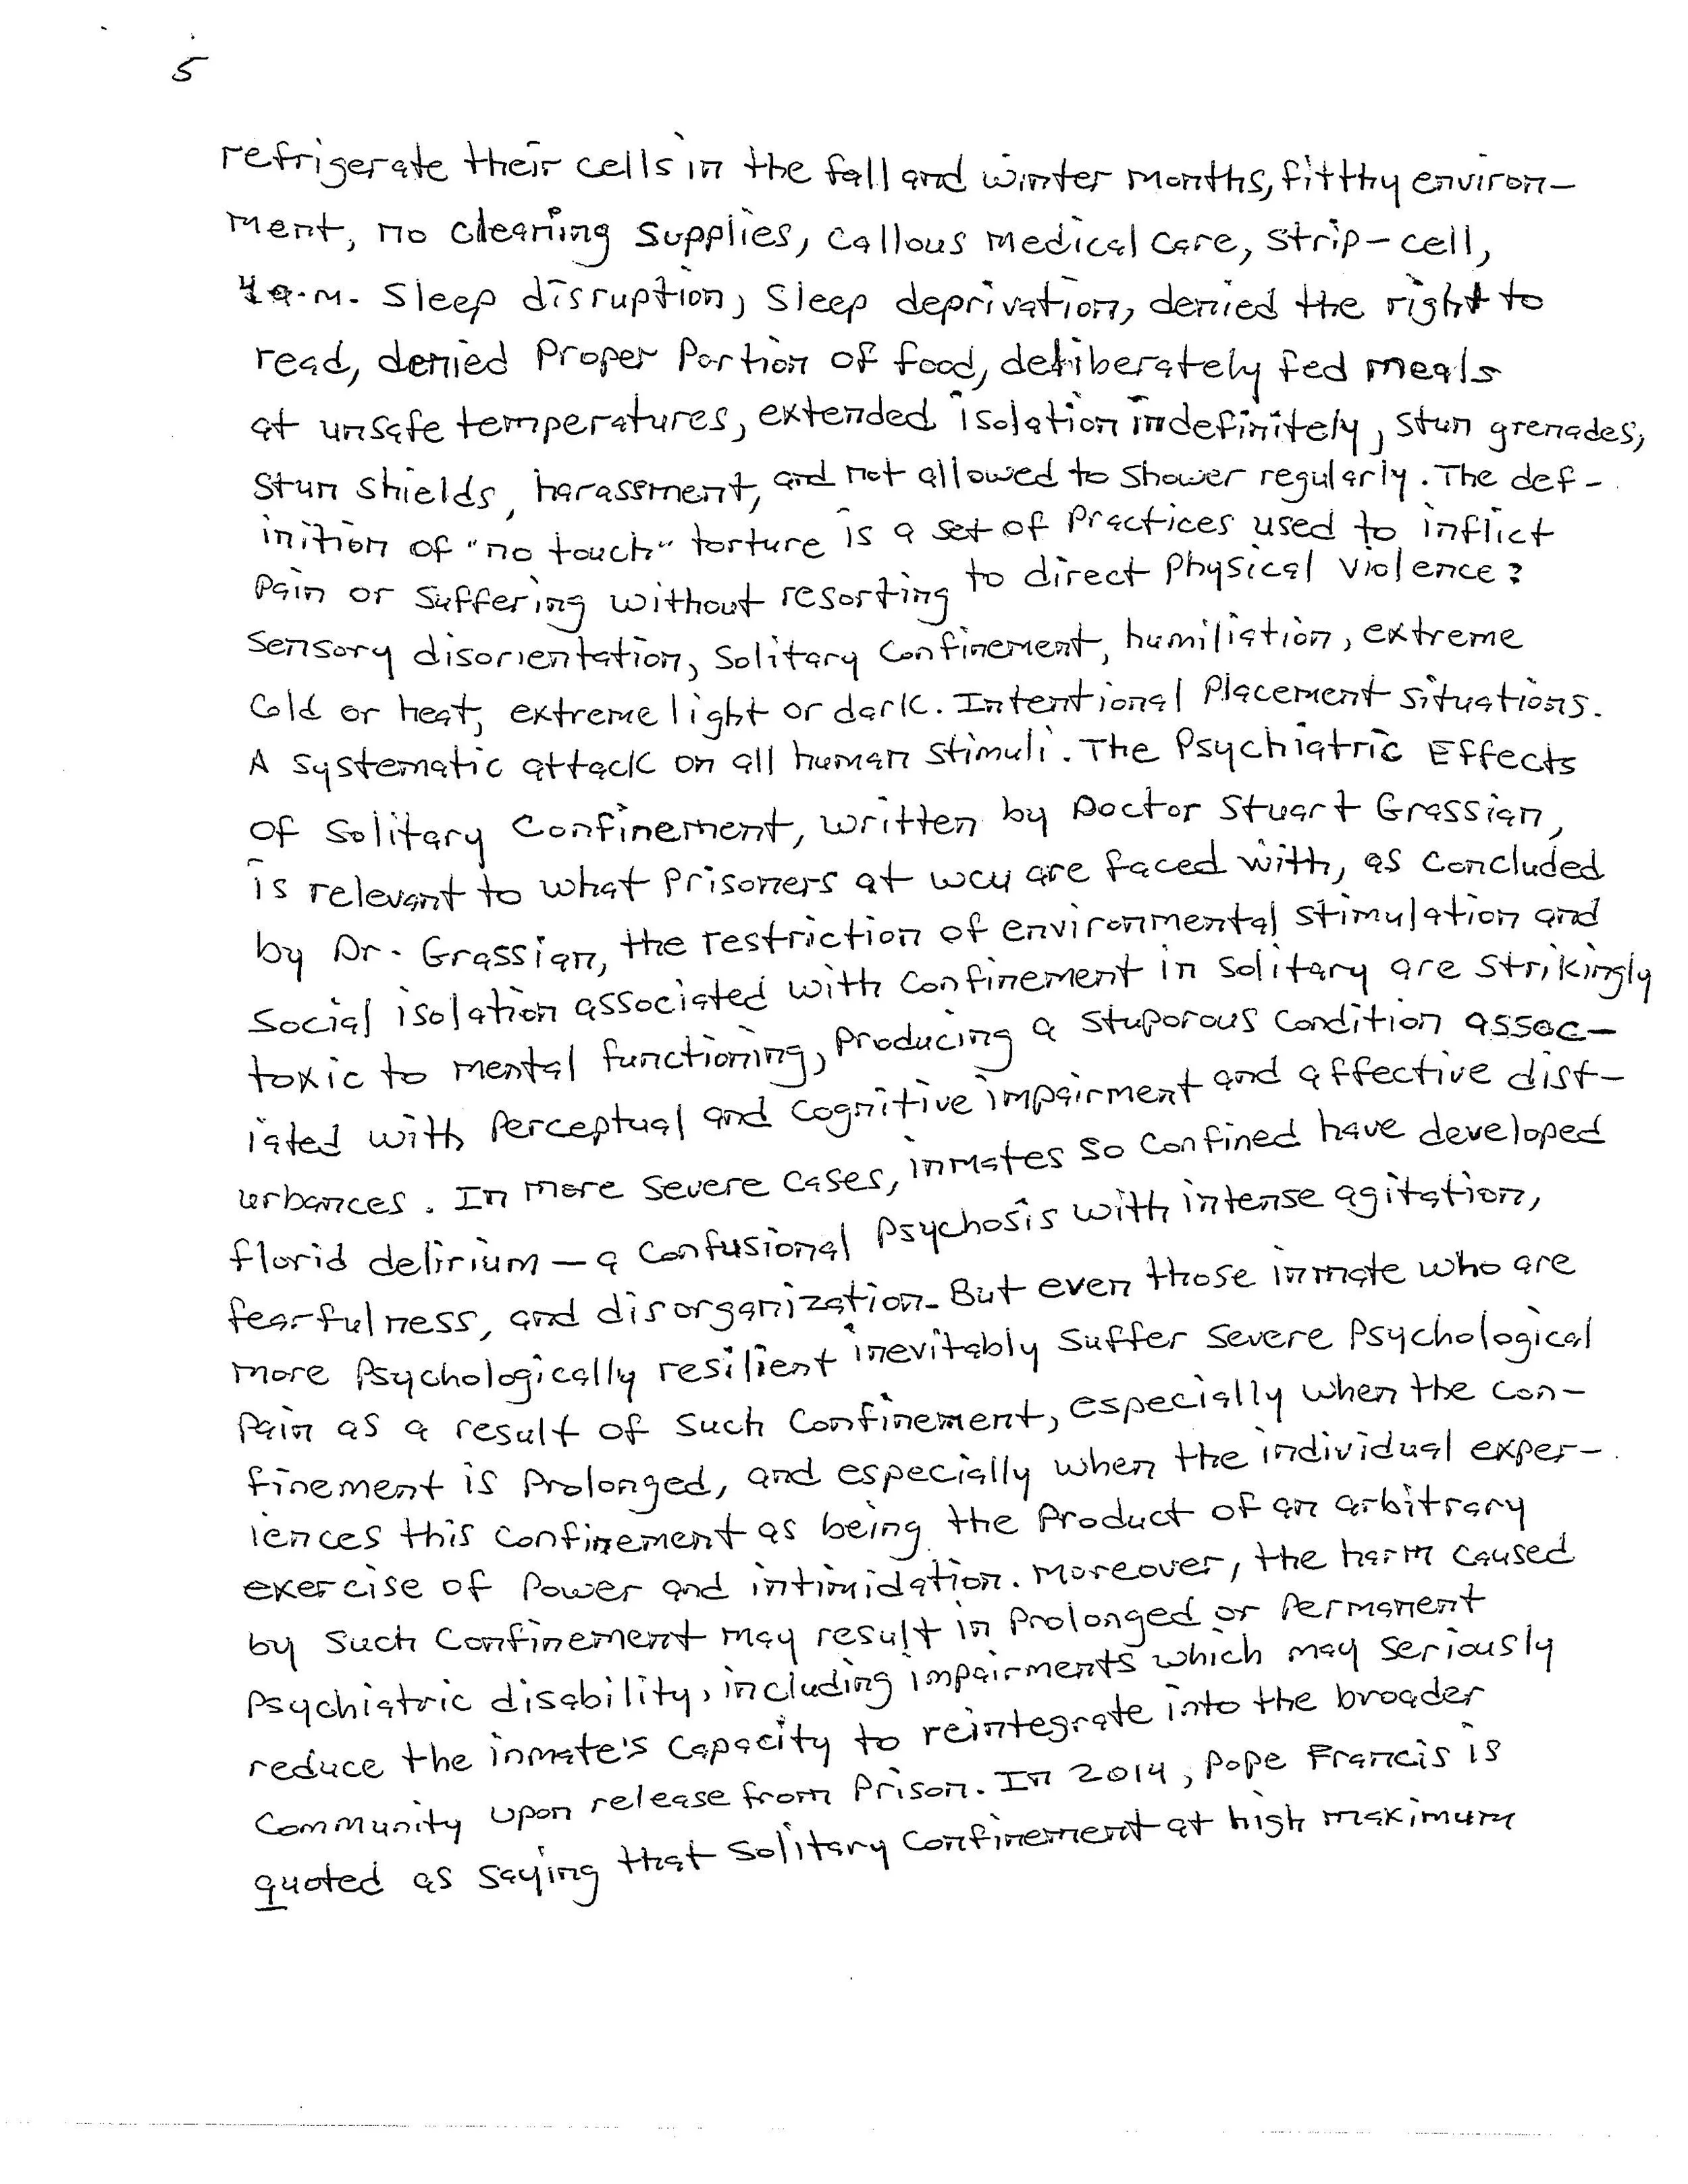 5
refrigerate their cells in the fall and winter months, fitthy environ-
ment, no cleaning supplies, callous medical care, strip-cell,
4 a.m. sleep disruption, sleep deprivation, denied the right to
read, denied proper portion of food, deliberately fed meals
at unsafe temperatures, extended isolation indefinitely, stun grenades,
stun shields, harassment, and not allowed to shower regularly. The def-
inition of "no touch" torture is a set of practices used to inflict
pain or suffering without resorting to direct physical violence?
sensory disorientation, solitary confinement, humiliation, extreme
cold or heat, extreme light or dark. Intentional placement situations.
A systematic attack on all human stimuli. The Psychiatric Effects
of Solitary Confinement, written by Doctor Stuart Grassian,
is relevant to what prisoners at wcu are faced with, as concluded
by Dr. Grassian, the restriction of environmental stimulation and
social isolation associated with confinement in solitary are strikingly
toxic to mental functioning, producing a stuporous condition assoc-
iated with perceptual and cognitive impairment and affective dist-
urbances. In more severe cases, inmates so confined have developed
florid delirium - a confusional psychosis with intense agitation,
fearfulness, and disorganization. But even those inmate who are
more psychologically resilient inevitably suffer severe psychological
pain as a result of such confinement, especially when the con-
finement is prolonged, and especially when the individual exper-
iences this confinement as being the product of an arbitrary
exercise of power and intimidation. Moreover, the harm caused
by such confinement may result in prolonged or permanent
psychiatric disability, including impairments which may seriously
reduce the inmate's capacity to reintegrate into the broader
community upon release from prison. In 2014, Pope Francis is
quoted as saying that solitary confinement at high maximum